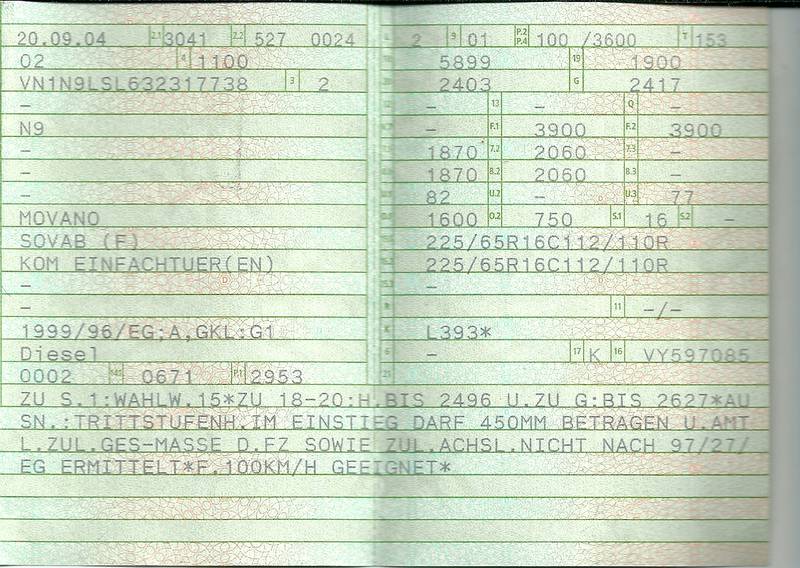 20.09.04 2.1 3041 2.2 527 0024
02 4 1100
VN1N9LSL632317738 3 2
–
N9
–
–
–
MOVANO
SOVAB (F)
KOM EINFACHTUER(EN)
–
–
1999/96/EG;A,GKL:G1
Diesel
0002 14.1 0671 P.1 2953
L 2 9 01 P.2 P.4 100 /3600 T 153
5899 19 1900
2403 G 2417
– 13 – Q –
– F.1 3900 F.2 3900
1870 7.2 2060 7.3 –
1870 8.2 2060 8.3 –
82 U.2 – U.3 77
1600 O.2 750 S.1 16 S.2 –
225/65R16C112/110R
225/65R16C112/110R
–
R 11 –/–
K L393*
6 – 17 K 16 VY597085
21
ZU S.1:WAHLW.15*ZU 18-20:H.BIS 2496 U.ZU G:BIS 2627*AU
SN.:TRITTSTUFENH.IM EINSTIEG DARF 450MM BETRAGEN U.AMT
L.ZUL.GES-MASSE D.FZ SOWIE ZUL.ACHSL.NICHT NACH 97/27/
EG ERMITTELT*F.100KM/H GEEIGNET*